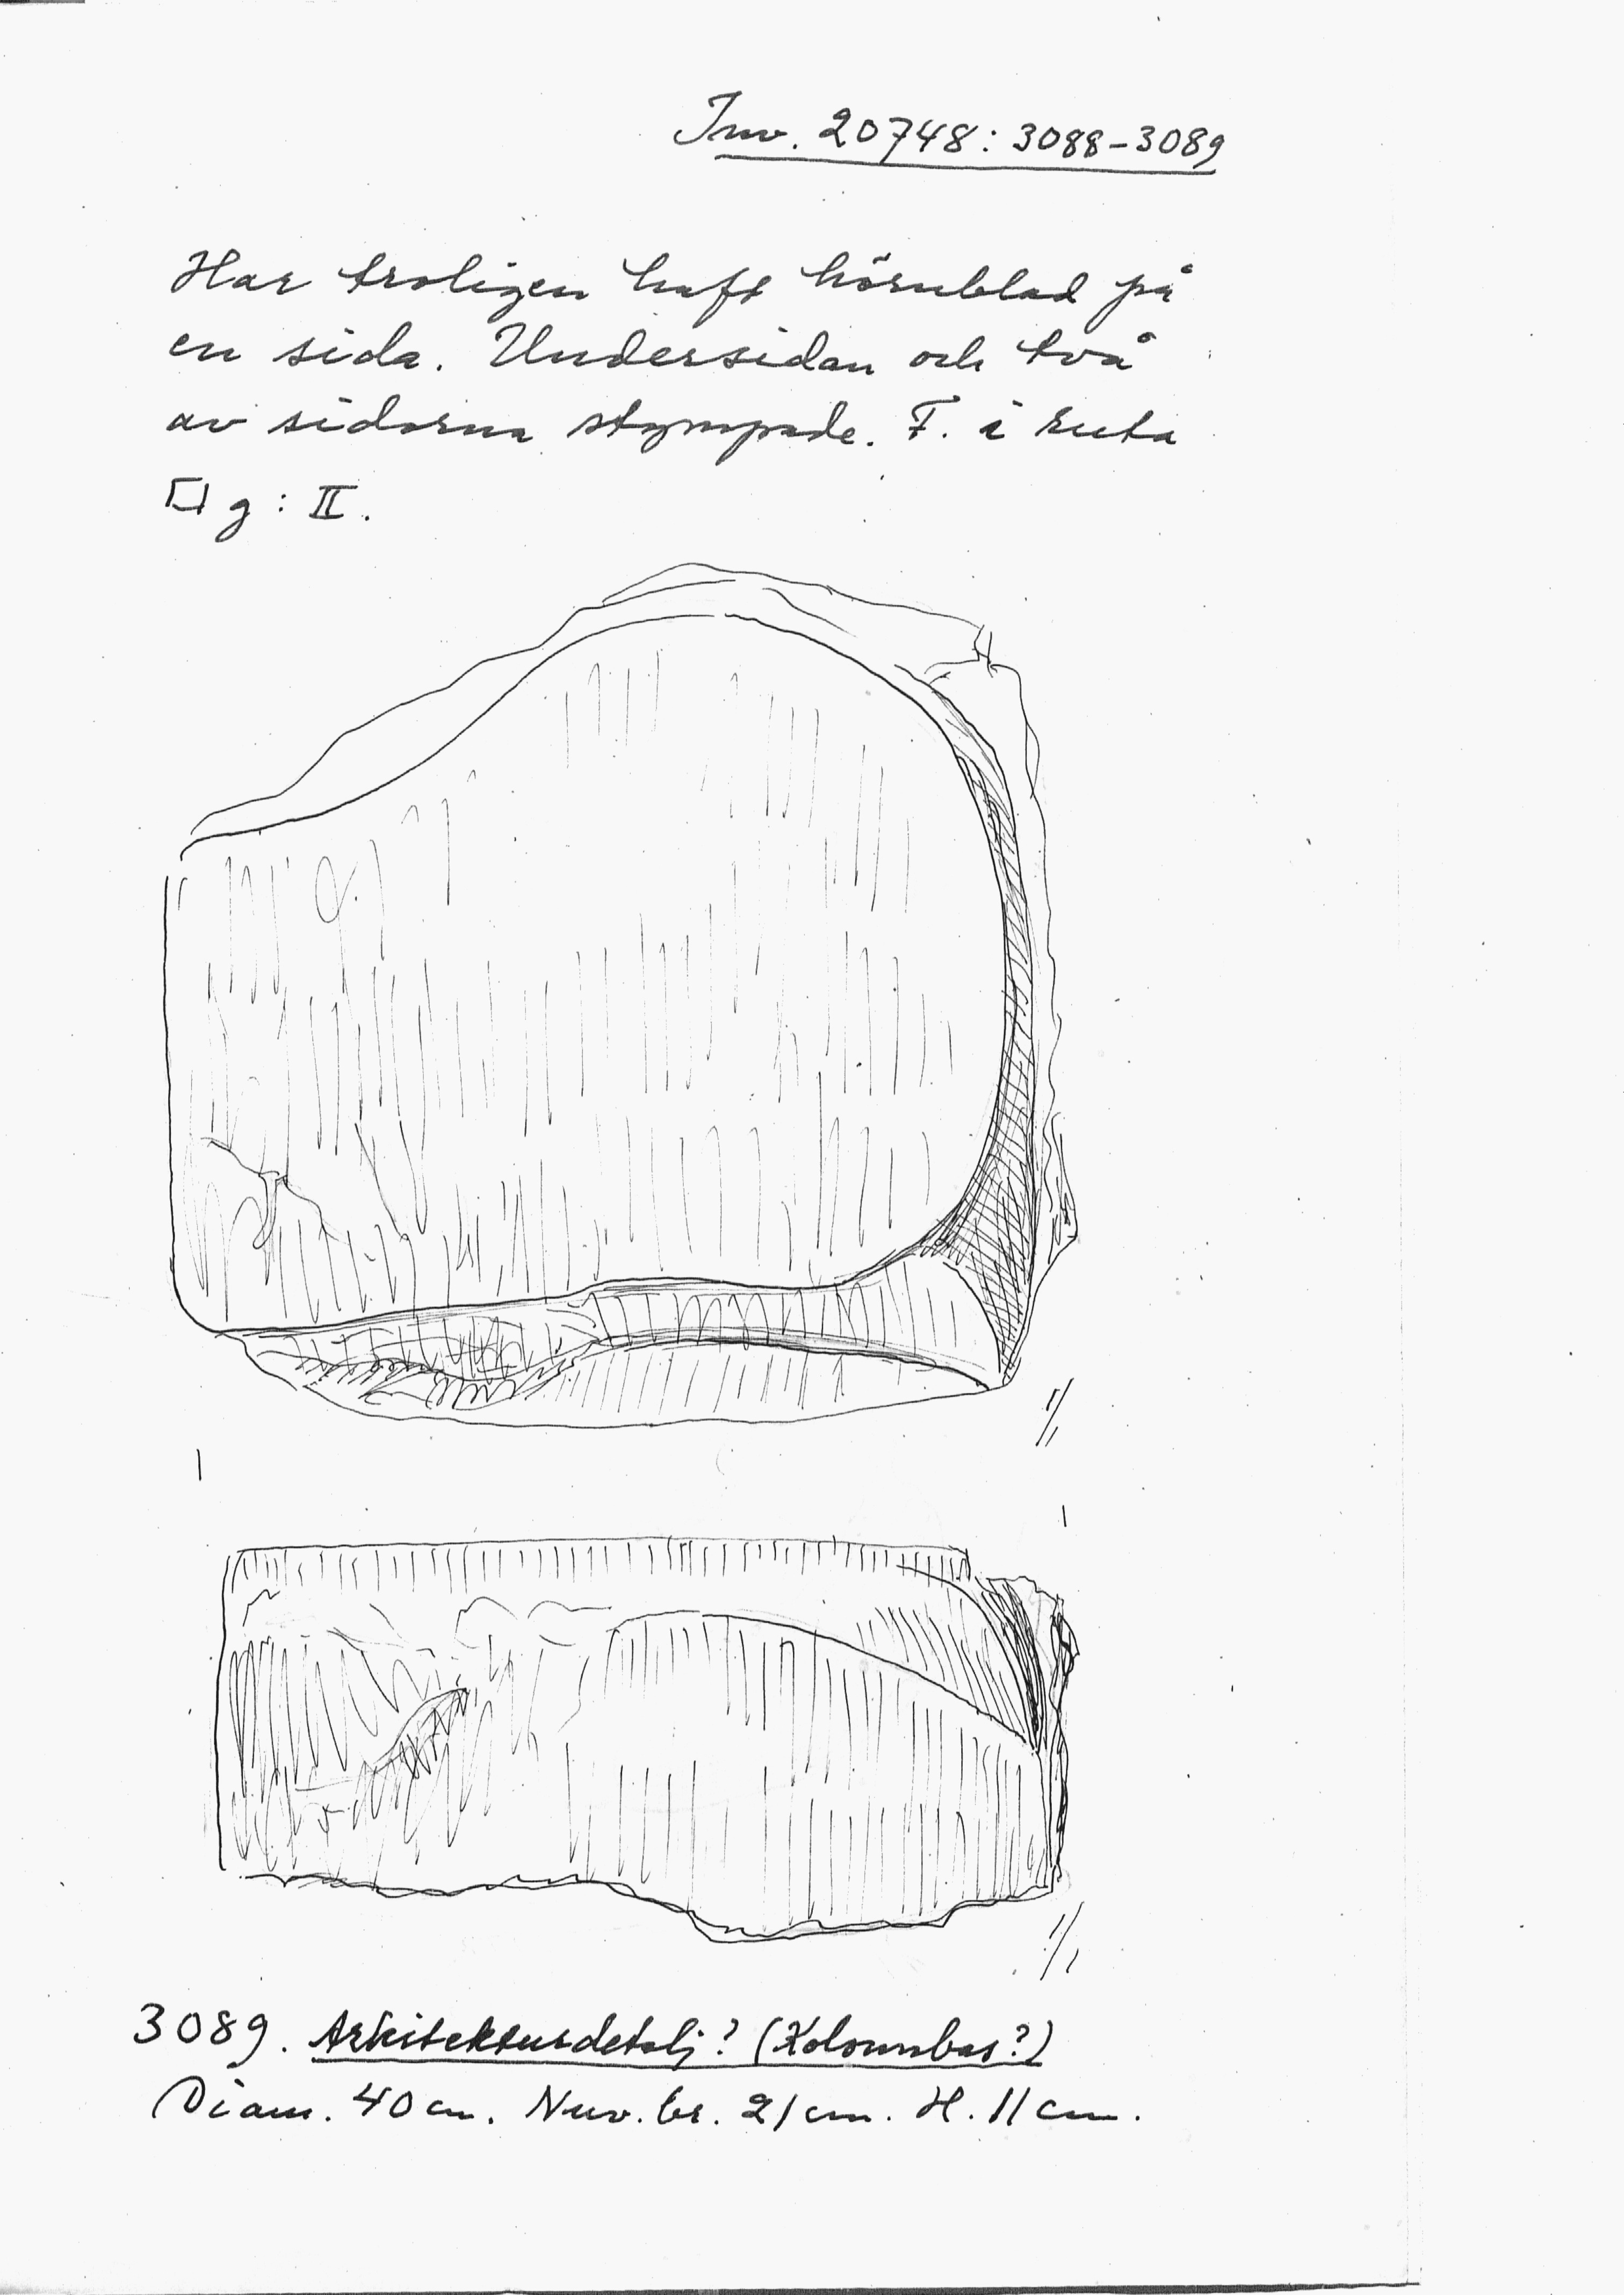 Inv. 20748: 3088-3089
Har troligen haft hörnblad på
en sida. Undersidan och två
av sidorna stympade. F. i ruta
g: II.
1/1
1/1
3089. Arkitekturdetalj? (Kolonnbas?)
Diam. 40 cm. Nuv. br. 21 cm. H. 11 cm.